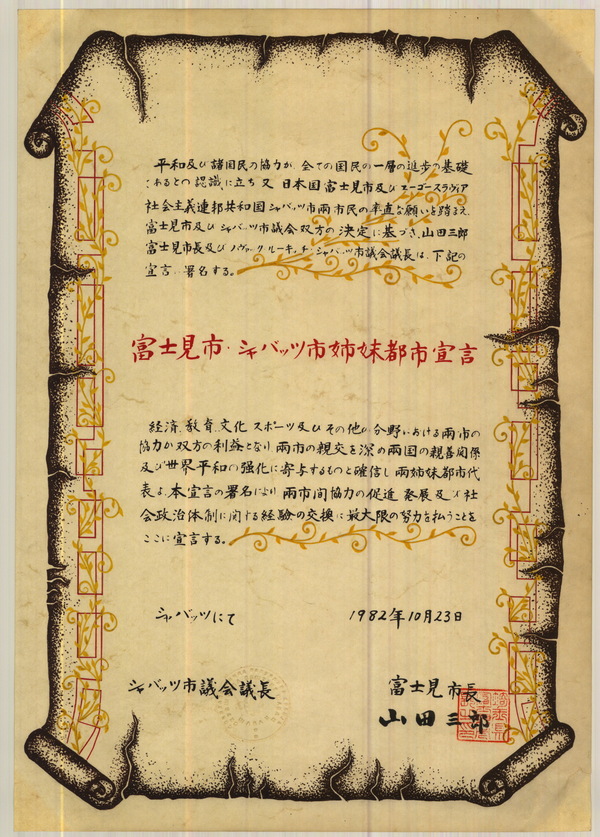 平和及び諸国民の協力が、全ての国民の一層の進歩の基礎
であるとの認識に立ち又、日本国富士見市及びユーゴースラヴィア
社会主義連邦共和国シャバッツ市両市民の率直な願いを踏まえ、
富士見市及びシャバッツ市議会双方の決定に基づき、山田三郎
富士見市長及びノヴァック・ルーキッチ・シャバッツ市議会議長は、下記の
宣言に署名する。
富士見市・シャバッツ市姉妹都市宣言
経済、教育、文化、スポーツ及びその他の分野における両市の
協力が双方の利益となり、両市の親交を深め両国の親善関係
及び世界平和の強化に寄与するものと確信し、両姉妹都市代
表は、本宣言の署名により、両市間協力の促進、発展及び社
会政治体制に関する経験の交換に最大限の努力を払うことを
ここに宣言する。
シャバッツにて 1982年10月23日
シャバッツ市議会議長 富士見市長
山田三郎